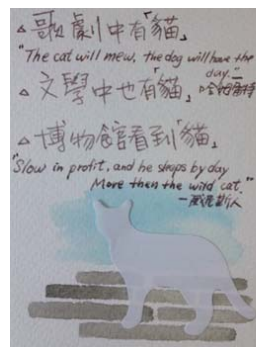 △歌劇中有「貓」
"The cat will mew, the dog will have the
day.—
△文學中也有「貓」 哈姆雷特
△博物館看到「貓」
"Slow in profit, and he sleeps by day
More than the wild cat."
—威尼斯人